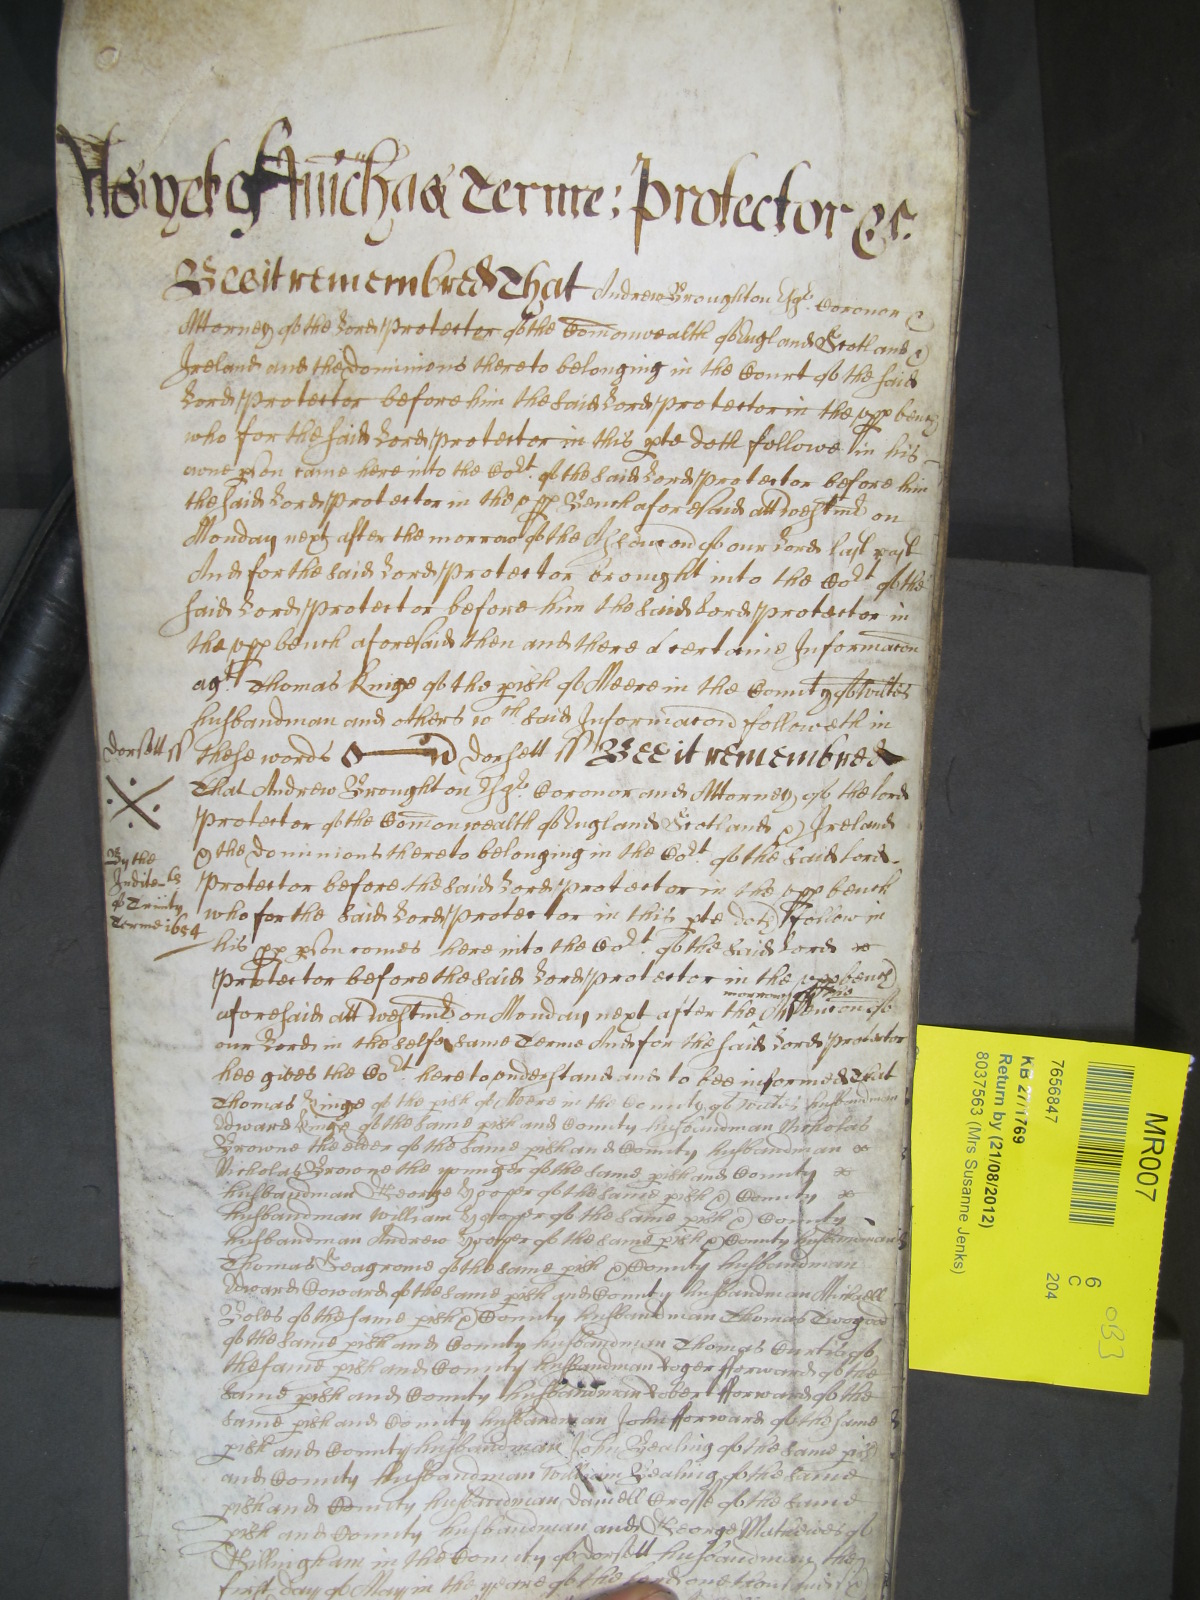 As yet of Mich'as Terme: Protector &c.
Bee it remembred That Andrew Broughton Esqr. Coronor &
Attorney of the Lord Protector of the Comonwealth of England Scotland &
Ireland and the dominions thereto belonging in the Court of the said
Lord Protector before him the said Lord Protector in the upp bench
who for the said Lord Protector in this pte doth followe in his
owne pson came here into the Cort. of the said Lord Protector before him
the said Lord Protector in the upp Bench aforesaid att Westmr on
Monday next after the morrow of the Ascencon of our Lord last past
And for the said Lord Protector brought into the Cort of the
said Lord Protector before him the said Lord Protector in
the upp bench aforesaid then and there a certaine Informacon
agt Thomas Kinge of the pish of Meere in the County of Wiltes
husbandman and others wch said Informacon followeth in
these words Dorsett ss Bee it remembred
Dorsett ss
That Andrew Broughton Esqr. Coronor and Attorney of the Lord
Protector of the Comonwealth of England Scotland & Ireland
& the Dominions thereto belonging in the Cort. of the said Lord
Protector before the said Lord Protector in the upp bench
By the
Indite
of Trinity
Terme 1654
who for the said Lord Protector in this pte doth follow in
his pp pson comes here into the Cort. of the said Lord
Protector before the said Lord Protector in the upp bench
morrow of the
aforesaid att Westmr on Monday next after the Ascencon of
our Lord in the selfe same Terme And for the said Lord Protector
hee gives the Cort. here to understand and to bee informed That
Thomas Kinge of the pish of Meere in the County of Wiltes husbandman
Edward Kinge of the same pish and County husbandman Nicholas
Browne the elder of the same pish and County husbandman
Nicholas Browne the younger of the same pish and County
husbandman George of the same pish & County
husbandman William of the same pish & County
husbandman Andrew of the same pish & County husbandman
Thomas Seagrome of the same pish & County husbandman
Edward Coward of the same pish and County husbandman Michell
Boles of the same pish & County husbandman Thomas Twogood
of the same pish and County husbandman Thomas Curtis of
the same pish and County husbandman Roger fforward of the
same pish and County husbandman Robert fforward of the
same pish and County husbandman John fforward of the same
pish and County husbandman John Bealing of the same pish
and County husbandman William Bealing of the same
pish and County husbandman Daniell Crosse of the same
pish and County husbandman and George Mathewes of
Gillingham in the County of Dorsett husbandman the
first day of May in the yeare of the Lord one thousand
MR007
7656847
6
C
204
KB 27/1769
Return by (21/08/2012)
8037563 (Mrs Susanne Jenks)